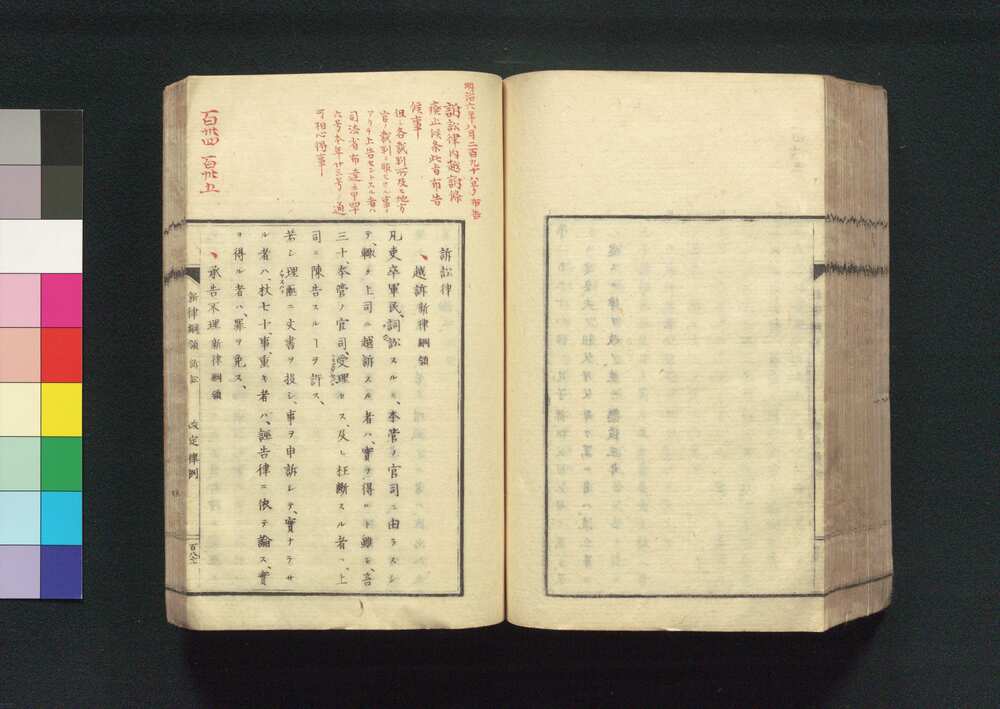 明治六年八月二百九十六号布告
訴訟律内越訴條
廃止候条此旨布告
候事
但シ各裁判所及ヒ地方
官ノ裁判ニ服セサル事
アリテ上告セントスル者ハ
司法省布達
六号本年廿三号ノ通
可相心得事
百卅四 百卅五
訴訟律
越訴新律綱領
凡吏卒軍民詞訟スルニ、本管ノ官司ニ由ラスシ
テ、輙ク上司ニ越訴スル者ハ、實ヲ得ルト雖モ、笞
三十、本管ノ官司、受理セス、及ヒ枉断スル者ハ、上
司ニ陳告スルヿヲ許ス、
若シ理無ニ文書ヲ投シ、事ヲ申訴シテ、實ナラサ
ル者ハ、杖七十、事重キ者ハ、誣告律ニ依テ論ス、實
ヲ得ル者ハ、罪ヲ免ス、
承告不理新律綱領
新律綱領 訴訟 改定律例
百八七